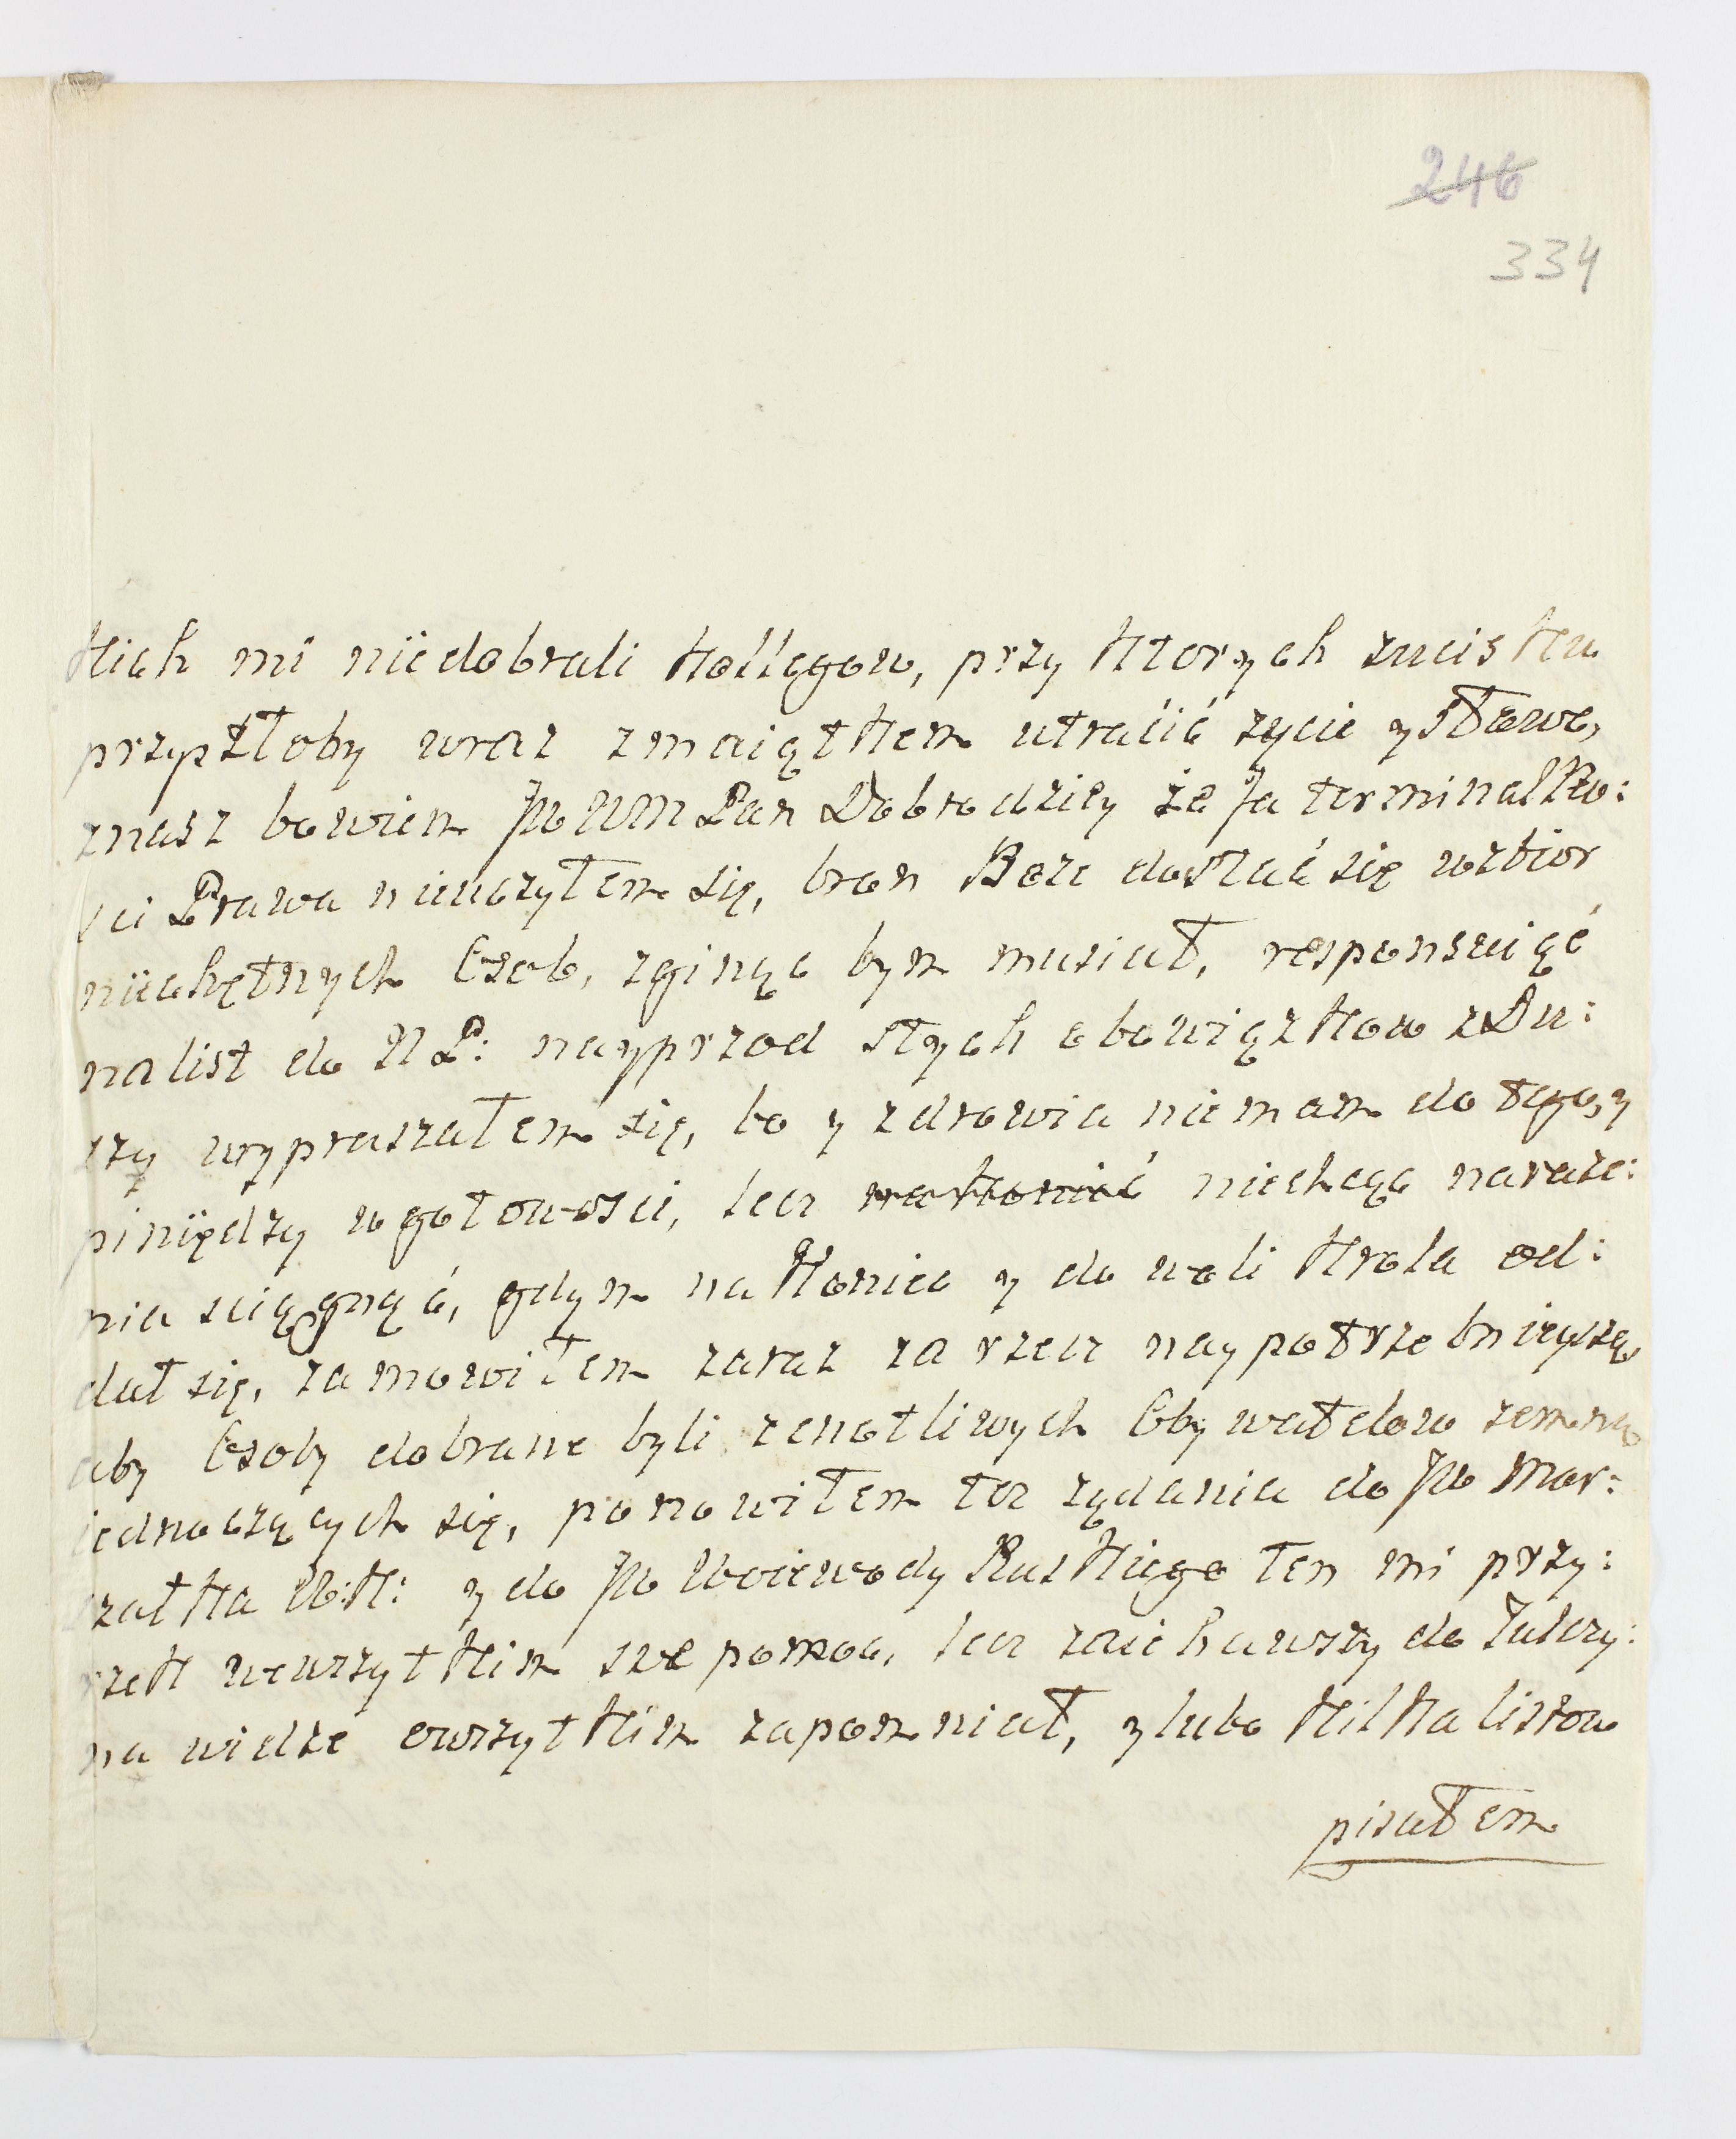 246
334
kich mi niedobrali kollegow, przy ktorych zuciskiem
przyszłoby wraz zmaiątkem utracić zycie y sławe,
znasz bowiem JW WM Pan Dobrodziey że Ja terminalno:
sci Prawa nieuczyłem się, bron Boze dostać się wzbior
niechętnych Osob, zginąc bym musiał, responsuiąć
na list do NP: nayprzod stych obowiązkow zDu:
szy wypraszałem się, bo y zdrowia niemam do tego, y
piniędzy w gotowosci, lecz niechcąc naraże:
nia sciągnąć, gdym na koniec y do woli krola od:
dał się, zamowiłem zaraz za rzecz naypotrzebnieyszą
aby Osoby dobrane byli zcnotliwych Obywatelow zemną
iednoczących się, ponowiłem toz ządania do JW Mar:
szałka W:K: y do JW Woiewody Ruskiego Ten mi przy:
rzekł wewszytkim swe pomoc, lecz zaiechawszy do Tulczy:
na widze owszytkim zapomniał, y lubo kilka listow
pisałem